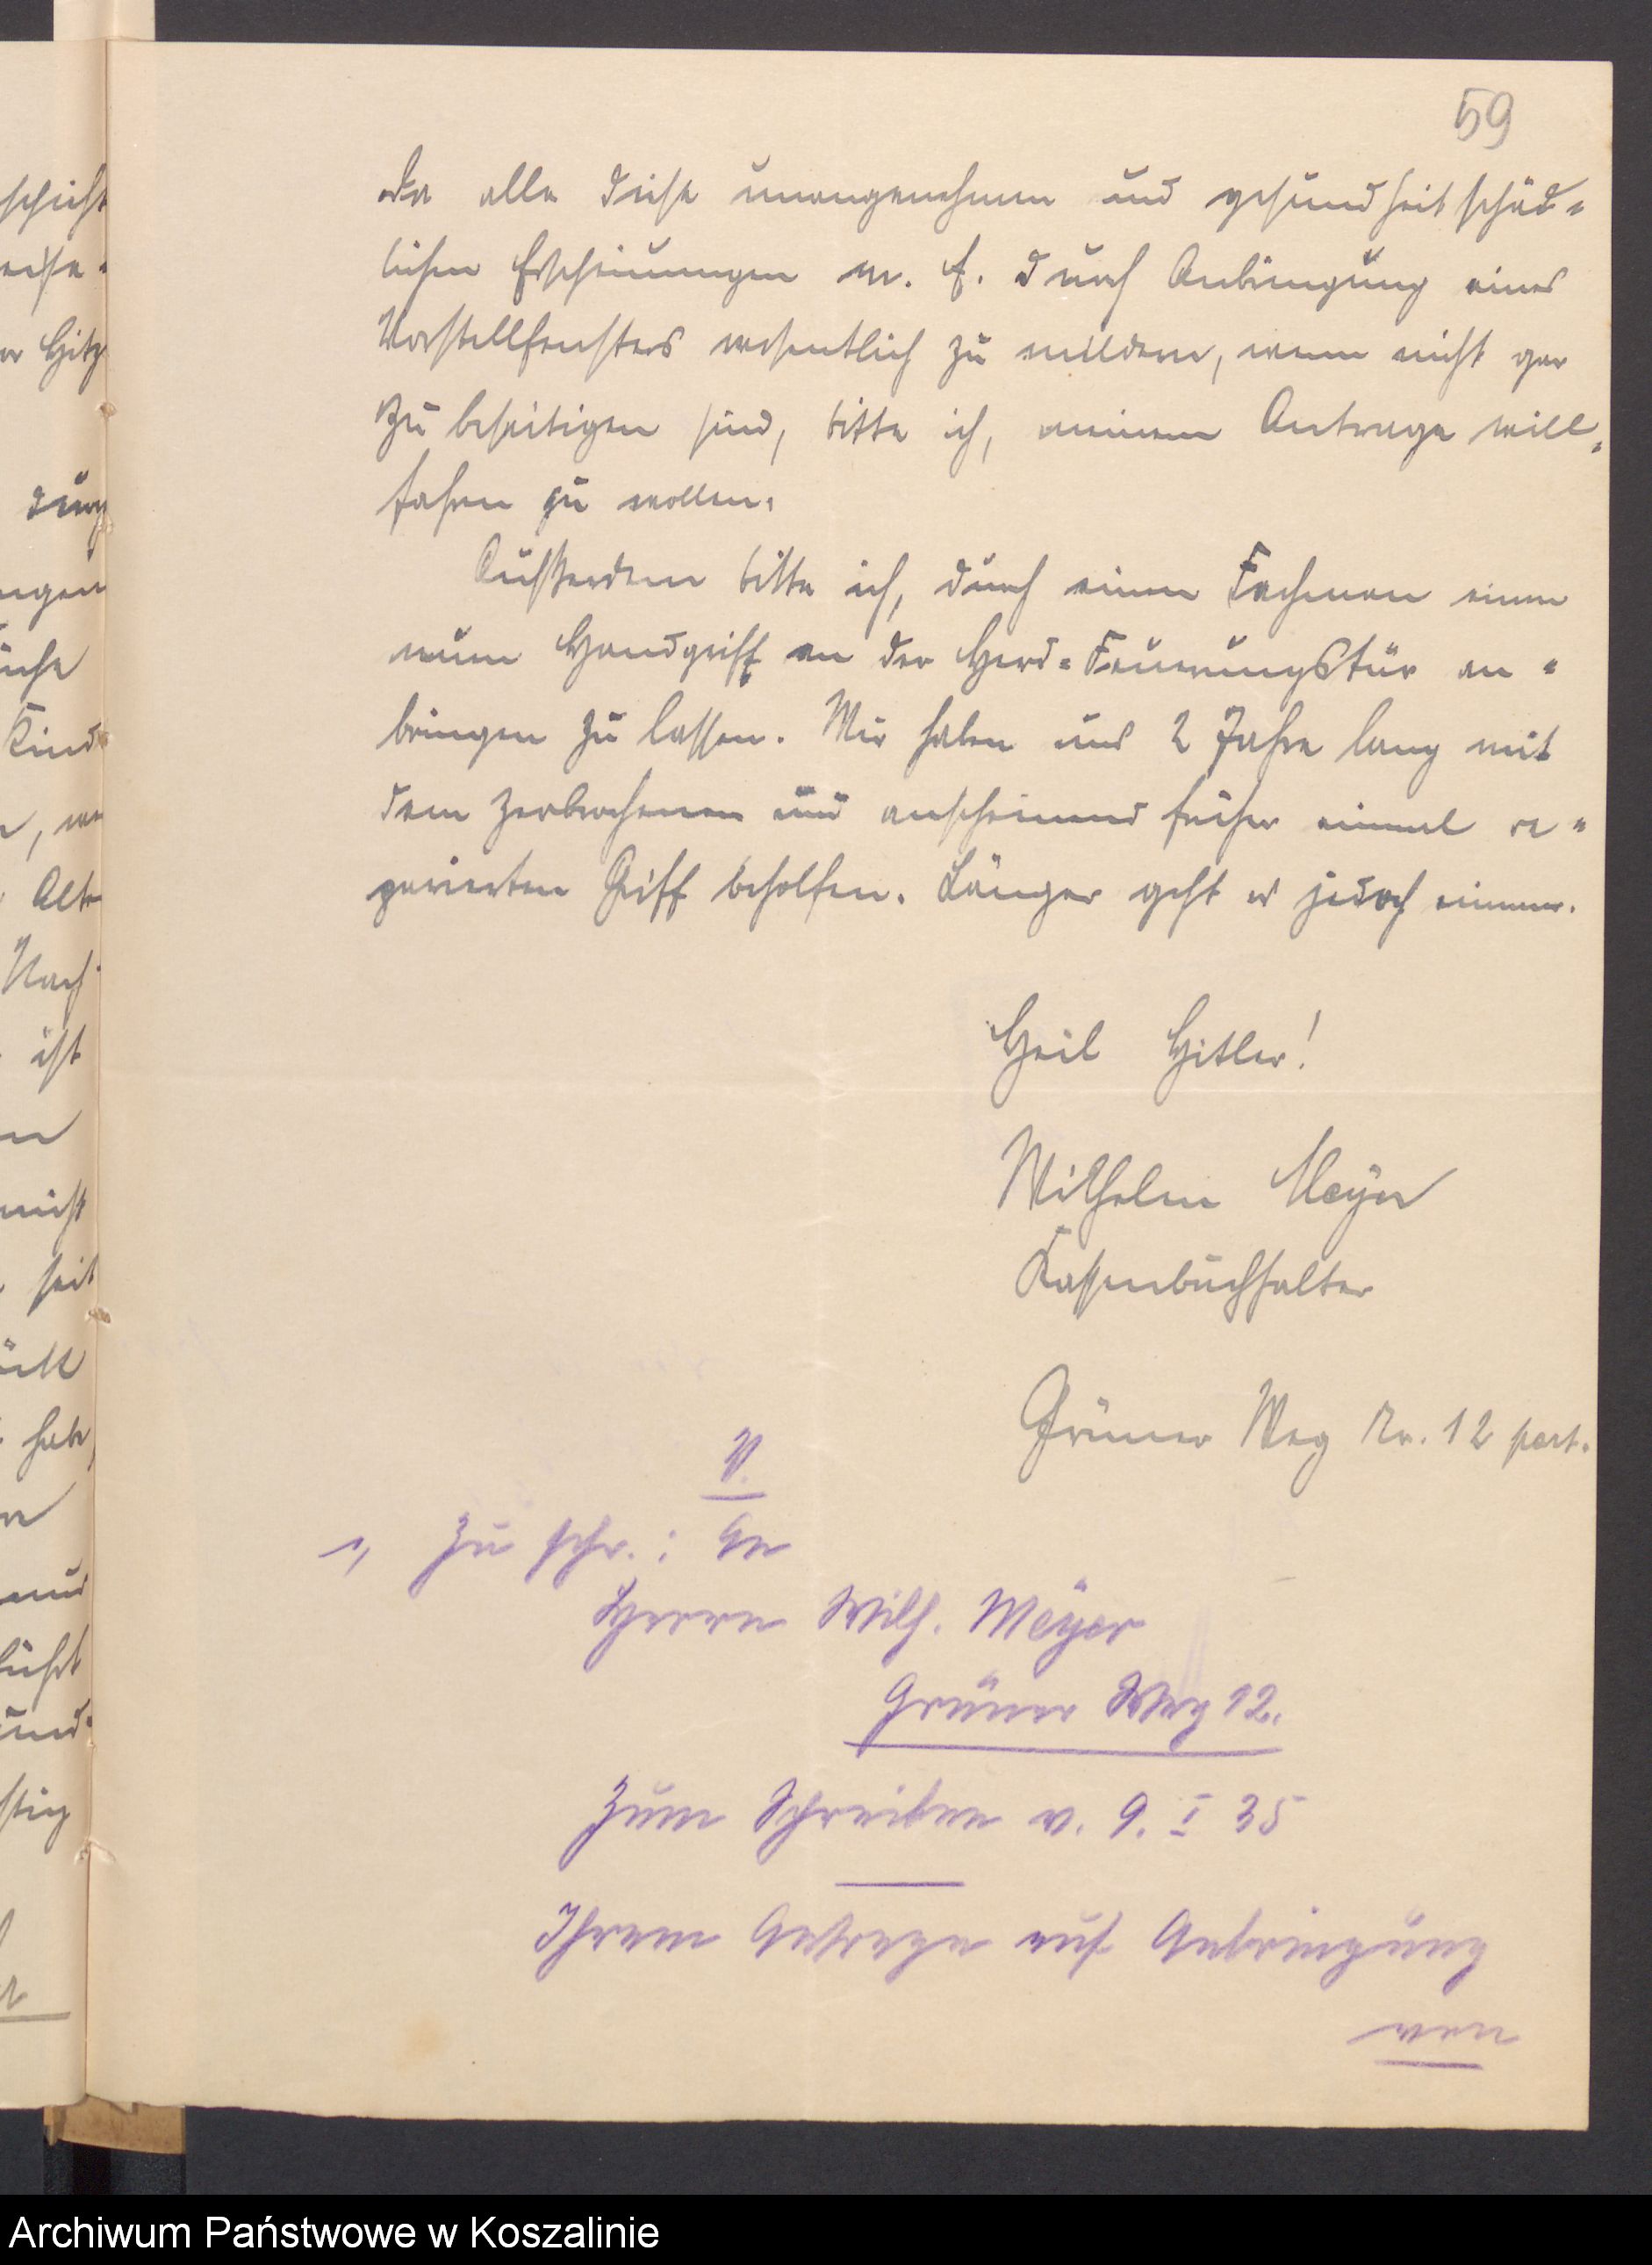 59
Da alle diese unangenehmen und gesundheitschäd-
lichen Erscheinungen m. E. durch Anbringung eines
Vorstellfensters wesentlich zu mildern, wenn nicht gar
zu beseitigen sind, bitte ich, meinem Antrage will-
fahren zu wollen.
Außerdem bitte ich, durch einen Fachmann einen
neuen Handgriff an der Herd-Feuerungstür an-
bringen zu lassen. Wir haben uns 2 Jahre lang mit
dem zerbrochenen und anscheinend früher einmal re-
parierten Griff beholfen. Länger geht es jedoch nimmer.
Heil Hitler!
Wilhelm Meyer
Kassenbuchhalter
Grüner Weg Nr. 12 part.
V.
1, Zu schr.: An
Herrn Wilh. Meyer
Grüner Weg 12.
Zum Schreiben v. 9. I 35
Ihrem Antrage auf Anbringung
von
schicht
Hitz
durch
ngen
Kind
Alt
Nach
ist
nicht
seit
habe
und
Archiwum Państwowe w Koszalinie